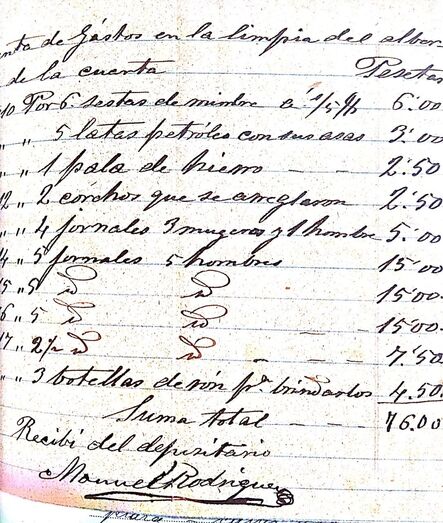 nta de Gastos en la limpia del alber
de la cuenta Pesetas
10 Por 6 sestas de mimbre á 6'00
" " 5 latas petróleo con sus asas 3'00
" " 1 pala de hierro - - 2'50
12 " 2 corchos que se arreglaron 2'50
" " 4 jornales 3 mugeres y 1 hombre 5'00
14 " 5 jornales 5 hombres 15'00
15 " 5 id id 15'00
16 " 5 id id 15'00
17 " 2½ id id - - 7'50
" " 3 botellas de rón pª brindarlos 4.50
Suma total - - 76.00
Recibí del depositario
Manuel Rodriguez